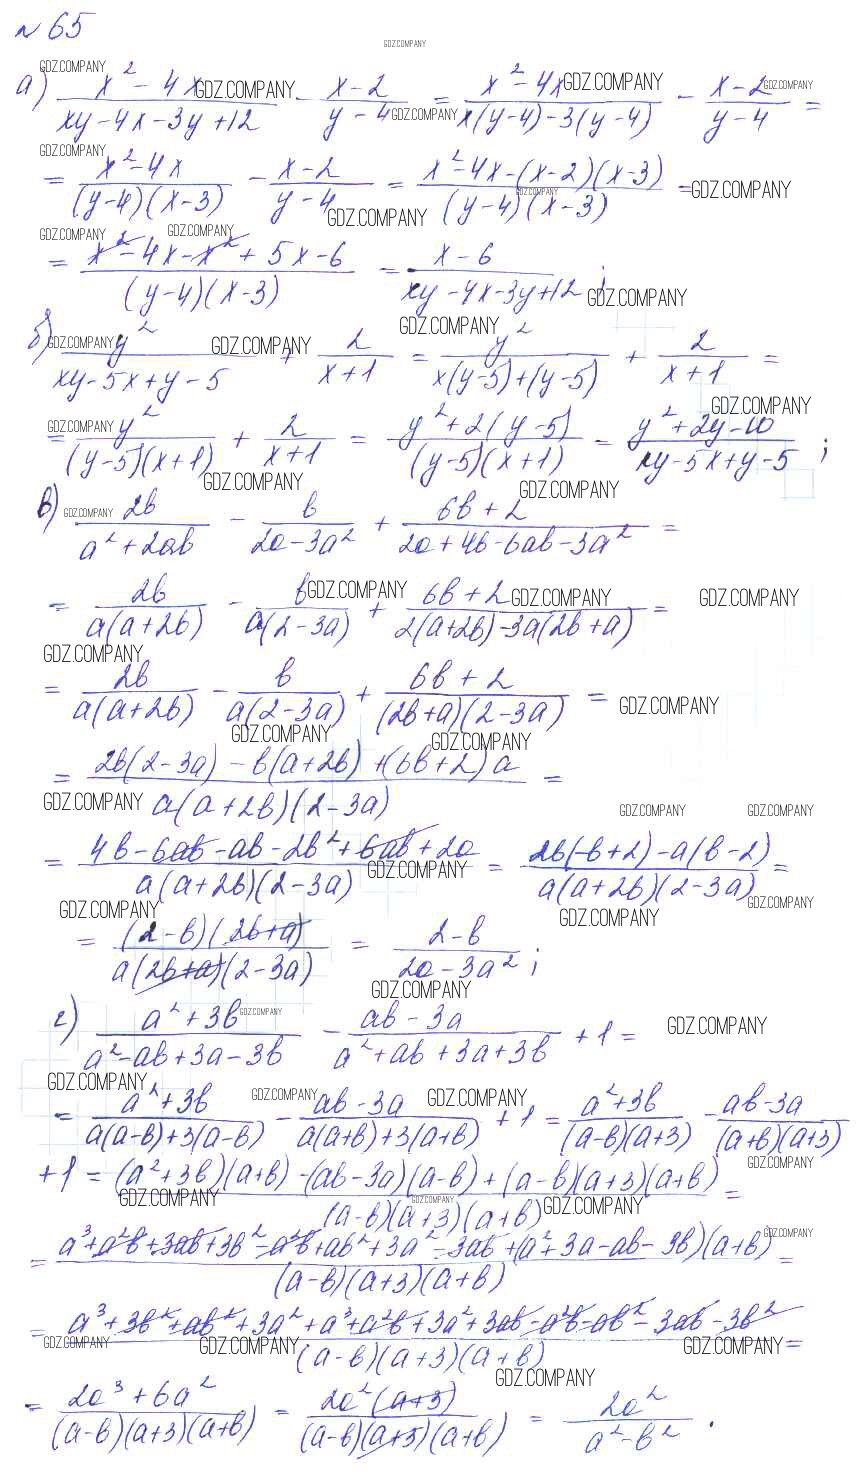 № 65
а) (x² - 4x)/(xy - 4x - 3y + 12) - (x - 2)/(y - 4) = (x² - 4x)/(x(y - 4) - 3(y - 4)) - (x - 2)/(y - 4) =
= (x² - 4x)/((y - 4)(x - 3)) - (x - 2)/(y - 4) = (x² - 4x - (x - 2)(x - 3))/((y - 4)(x - 3)) =
= (x² - 4x - x² + 5x - 6)/((y - 4)(x - 3)) = (x - 6)/(xy - 4x - 3y + 12) ;
б) y²/(xy - 5x + y - 5) + 2/(x + 1) = y²/(x(y - 5) + (y - 5)) + 2/(x + 1) =
= y²/((y - 5)(x + 1)) + 2/(x + 1) = (y² + 2(y - 5))/((y - 5)(x + 1)) = (y² + 2y - 10)/(xy - 5x + y - 5) ;
в) 2b/(a² + 2ab) - b/(2a - 3a²) + (6b + 2)/(2a + 4b - 6ab - 3a²) =
= 2b/(a(a + 2b)) - b/(a(2 - 3a)) + (6b + 2)/(2(a + 2b) - 3a(2b + a)) =
= 2b/(a(a + 2b)) - b/(a(2 - 3a)) + (6b + 2)/((2b + a)(2 - 3a)) =
= (2b(2 - 3a) - b(a + 2b) + (6b + 2)a)/(a(a + 2b)(2 - 3a)) =
= (4b - 6ab - ab - 2b² + 6ab + 2a)/(a(a + 2b)(2 - 3a)) = (2b(-b + 2) - a(b - 2))/(a(a + 2b)(2 - 3a)) =
= ((2 - b)(2b + a))/(a(2b + a)(2 - 3a)) = (2 - b)/(2a - 3a²) ;
г) (a² + 3b)/(a² - ab + 3a - 3b) - (ab - 3a)/(a² + ab + 3a + 3b) + 1 =
= (a² + 3b)/(a(a - b) + 3(a - b)) - (ab - 3a)/(a(a + b) + 3(a + b)) + 1 = (a² + 3b)/((a - b)(a + 3)) - (ab - 3a)/((a + b)(a + 3))
+ 1 = ((a² + 3b)(a + b) - (ab - 3a)(a - b) + (a - b)(a + 3)(a + b))/((a - b)(a + 3)(a + b)) =
= (a³ + a²b + 3ab + 3b² - a²b + ab² + 3a² - 3ab + (a² + 3a - ab - 3b)(a + b))/((a - b)(a + 3)(a + b)) =
= (a³ + 3b² + ab² + 3a² + a³ + a²b + 3a² + 3ab - a²b - ab² - 3ab - 3b²)/((a - b)(a + 3)(a + b)) =
= (2a³ + 6a²)/((a - b)(a + 3)(a + b)) = (2a²(a + 3))/((a - b)(a + 3)(a + b)) = 2a²/(a² - b²) .
GDZ.COMPANY